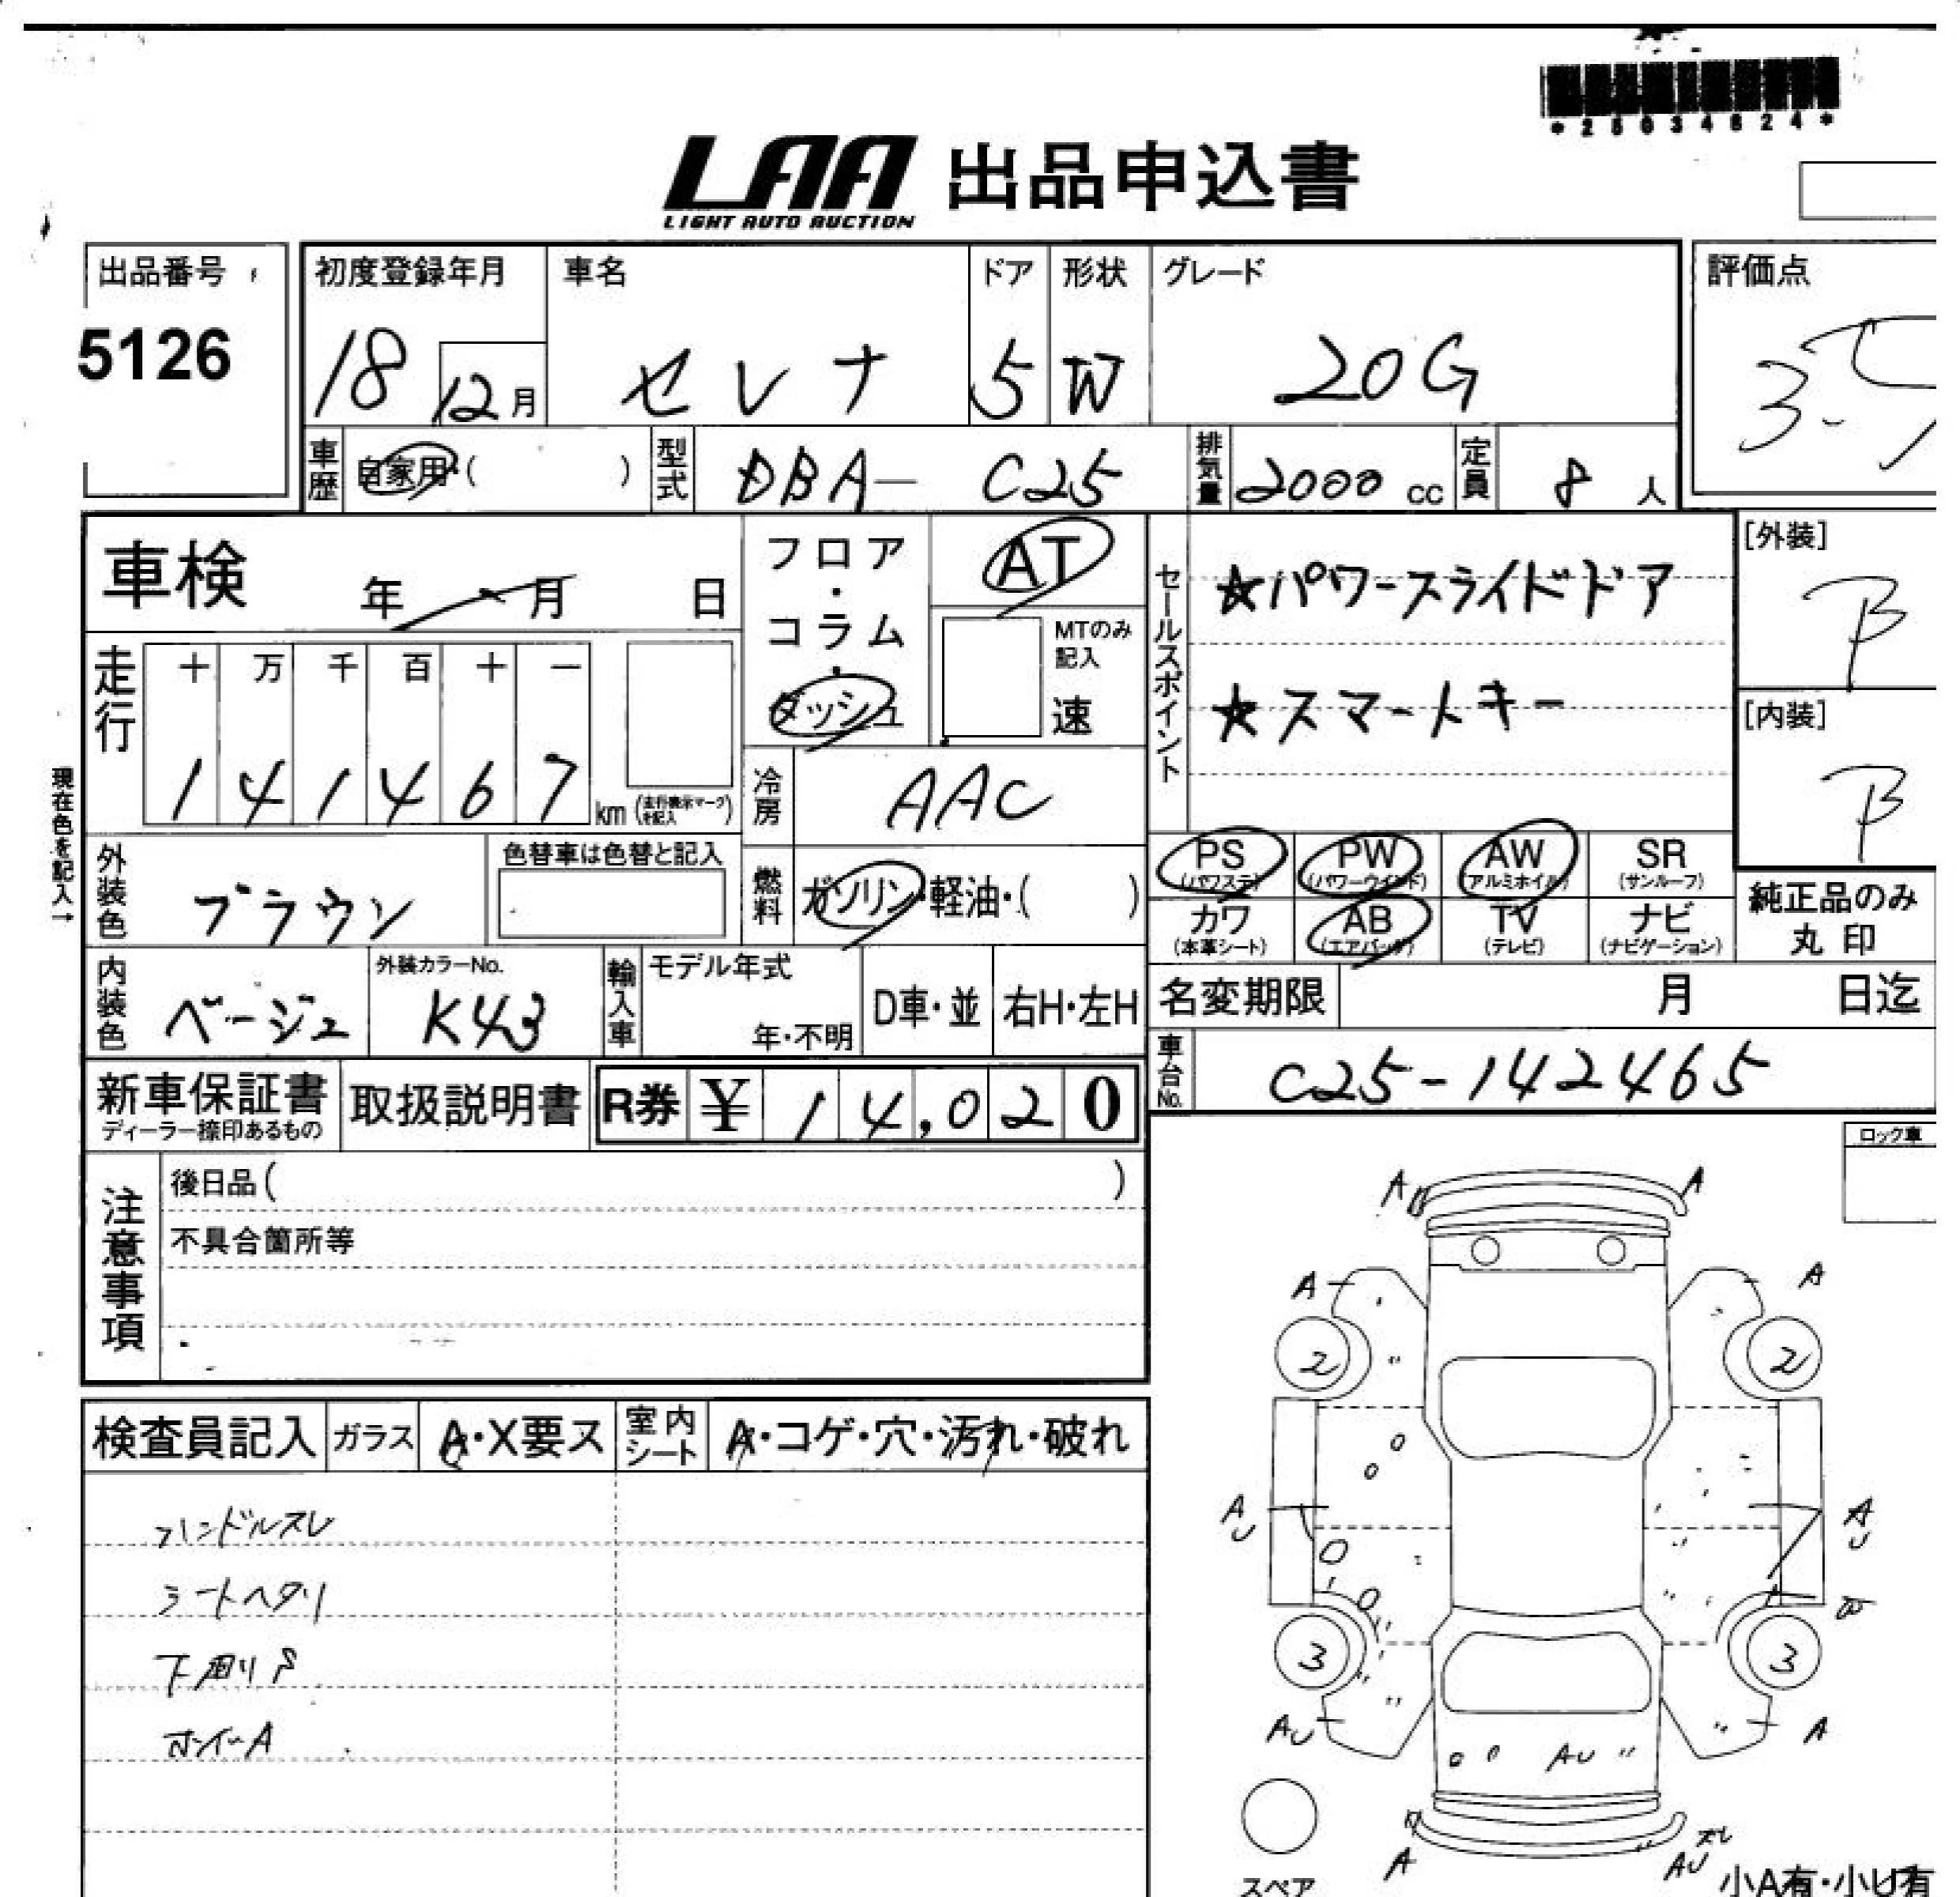 *25034824*
LAA 出品申込書
LIGHT AUTO AUCTION
出品番号
5126
初度登録年月
18 12月
車名
セレナ
ドア
5
形状
W
グレード
20G
評価点
3.5
車歴 自家用・( )
型式 DBA- C25
排気量 2000 cc
定員 8 人
車検 年 月 日
フロア・コラム・ダッシュ
AT
MTのみ記入
速
セールスポイント
★パワースライドドア
★スマートキー
[外装]
B
[内装]
B
走行
十 万 千 百 十 一
1 4 1 4 6 7 km (走行表示マークを記入)
冷房 AAC
現在色を記入→
外装色 ブラウン
色替車は色替と記入
燃料 ガソリン・軽油・( )
PS (パワステ)
PW (パワーウインド)
AW (アルミホイル)
SR (サンルーフ)
カワ (本革シート)
AB (エアバック)
TV (テレビ)
ナビ (ナビゲーション)
純正品のみ
丸印
内装色 ベージュ
外装カラーNo.
K43
輸入車
モデル年式
年・不明
D車・並
右H・左H
名変期限 月 日迄
車台No. C25-142465
新車保証書
ディーラー捺印あるもの
取扱説明書
R券 ¥ 14,020
注意事項
後日品( )
不具合箇所等
ロック車
検査員記入
ガラス A・X要ス
室内シート A・コゲ・穴・汚れ・破れ
ハンドルスレ
シートヘタリ
下廻りS
ホイールA
A A
A A
2 2
AU AU
W
3 3
AU A
AU
A AU
スペア
小A有・小U有